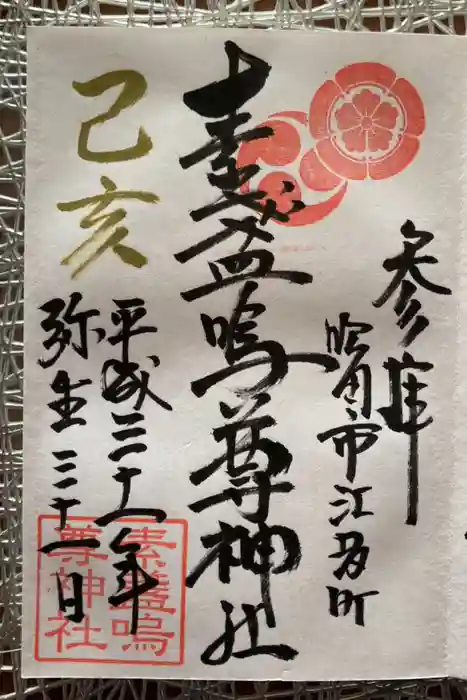 参拝
吹田市江坂町
素盞嗚尊神社
己亥
平成三十一年
弥生三十一日
素盞嗚
尊神社